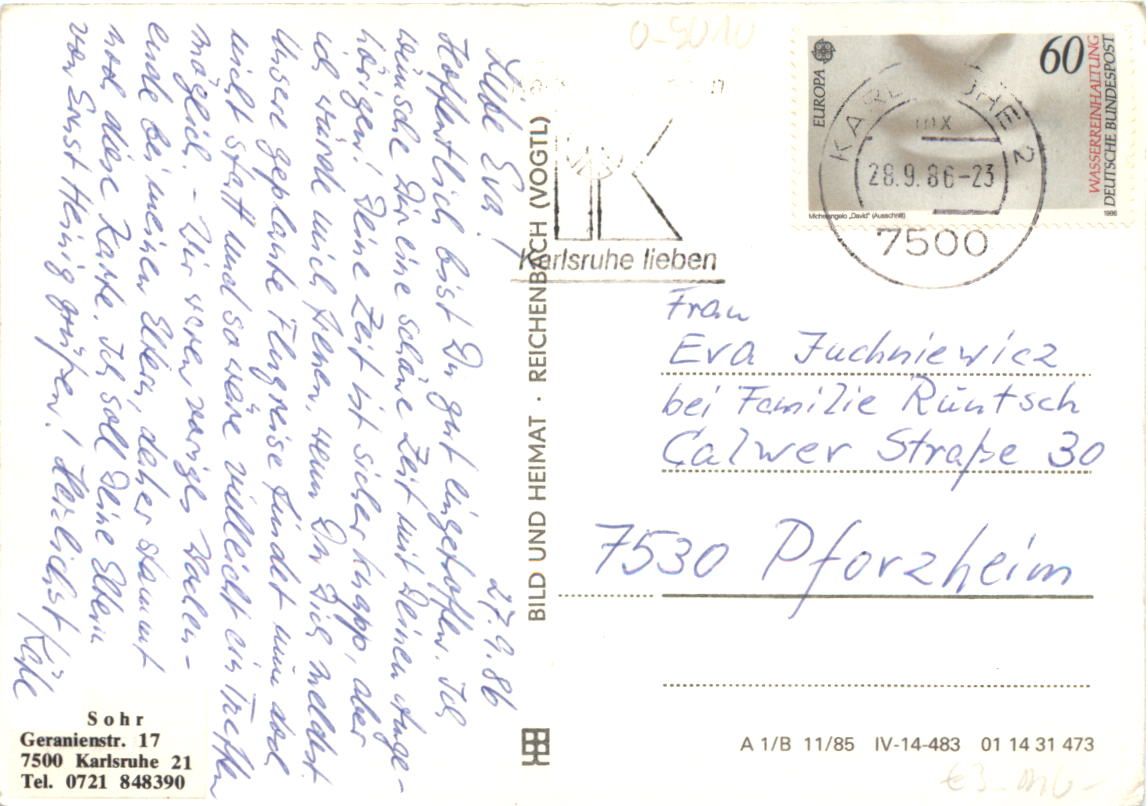 Liebe Eva! 27.9.86
Hoffentlich bist Du gut eingetroffen. Ich
wünsche Dir eine schöne Zeit mit Deinen Ange-
hörigen! Deine Zeit ist sicher knapp, aber
ich würde mich freuen, wenn Du Dich meldest.
Unsere geplante Flugreise findet nun doch
nicht statt und so wäre vielleicht ein Treffen
möglich. - Wir waren voriges Wochen-
ende bei meinen Eltern, daher stammt
noch diese Karte. Ich soll Deine Eltern
von Ernst Heinig grüßen! Herzlichst Käte
Sohr
Geranienstr. 17
7500 Karlsruhe 21
Tel. 0721 848390
BILD UND HEIMAT · REICHENBACH (VOGTL)
0-9010
Karlsruhe lieben
EUROPA
60
WASSERREINHALTUNG
DEUTSCHE BUNDESPOST
Michelangelo „David" (Ausschnitt)
1986
KARLSRUHE 2
mx
28.9.86-23
7500
Frau
Eva Juchniewicz
bei Familie Rüntsch
Calwer Straße 30
7530 Pforzheim
A 1/B 11/85 IV-14-483 01 14 31 473